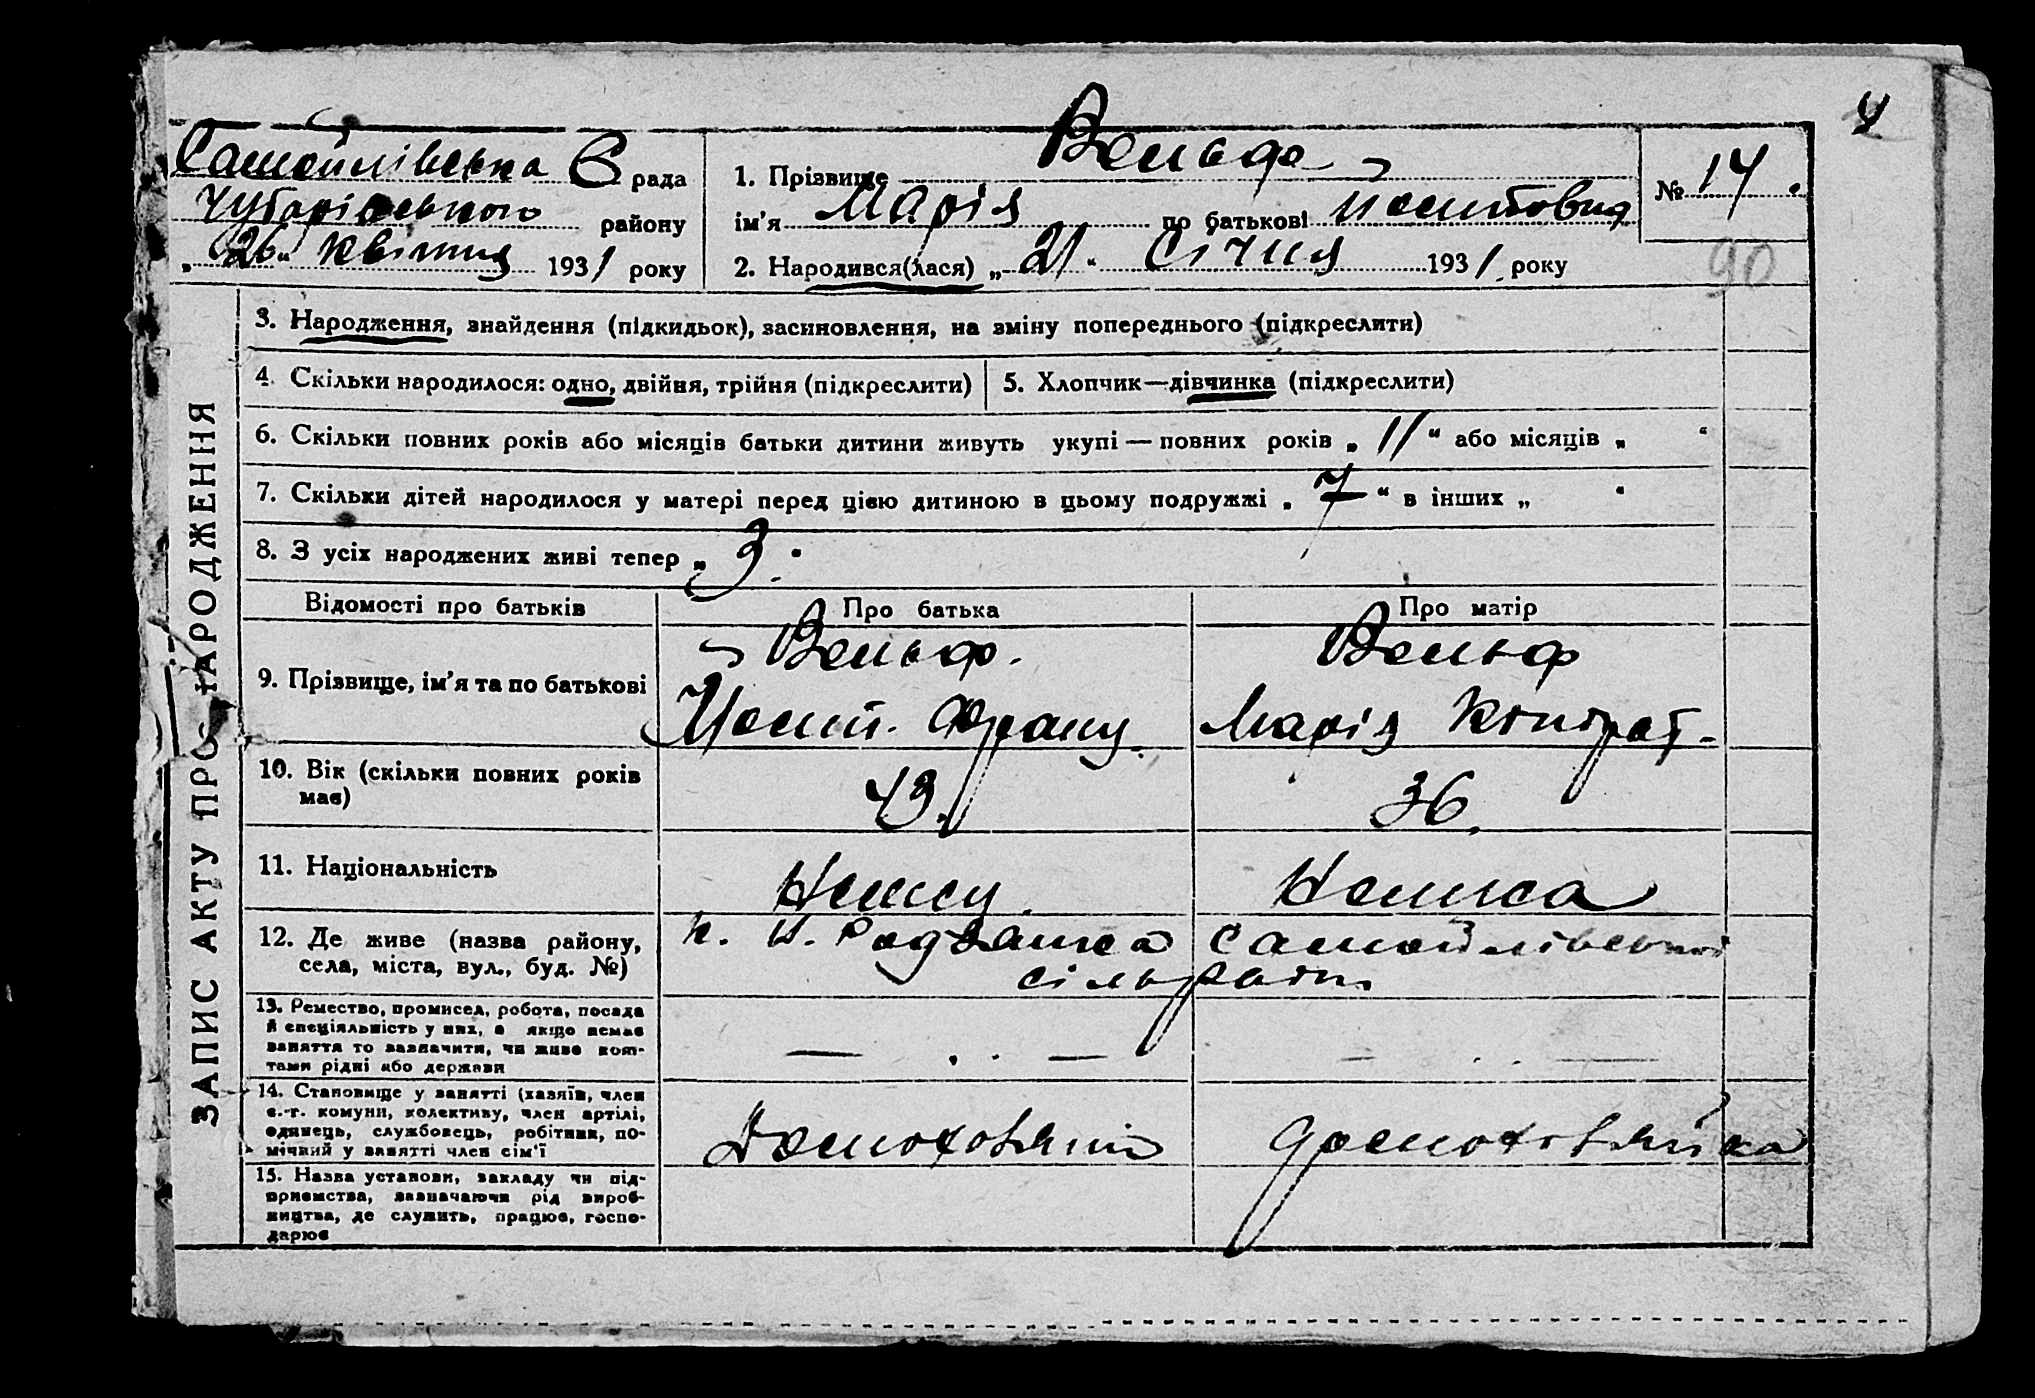 4
Самойлівська С рада
Чубарівського району
„26“ квітня 1931 року
1. Прізвище Вельф
ім'я Марія по батькові
2. Народився(лася) „21“ Січня 1931 року
№ 14.
90
ЗАПИС АКТУ ПРО НАРОДЖЕННЯ
3. Народження, знайдення (підкидьок), засиновлення, на зміну попереднього (підкреслити)
4. Скільки народилося: одно, двійня, трійня (підкреслити)
5. Хлопчик—дівчинка (підкреслити)
6. Скільки повних років або місяців батьки дитини живуть укупі — повних років „11“ або місяців „ “
7. Скільки дітей народилося у матері перед цією дитиною в цьому подружжі „7“ в інших „ “
8. З усіх народжених живі тепер „3.
Відомості про батьків
Про батька
Про матір
9. Прізвище, ім'я та по батькові
Вельф.
Франц.
Вельф
Марія Кондрат.
10. Вік (скільки повних років
має)
43.
36.
11. Національність
Немец
Немка
12. Де живе (назва району,
села, міста, вул., буд. №)
к. Н. Самойлівської
сільради
13. Ремество, промисел, робота, посада
й спеціяльність у них, а якщо немає
заняття то зазначити, чи живе кош-
тами рідні або держави
— . . —
— . . —
14. Становище у занятті (хазяїн, член
с.-г. комуни, колективу, член артілі,
одинець, службовець, робітник, по-
мічний у занятті член сім'ї
Домохозяин
домохозяйка
15. Назва установи, закладу чи під-
приємства, зазначаючи рід вироб-
ництва, де служить, працює, госпо-
дарює